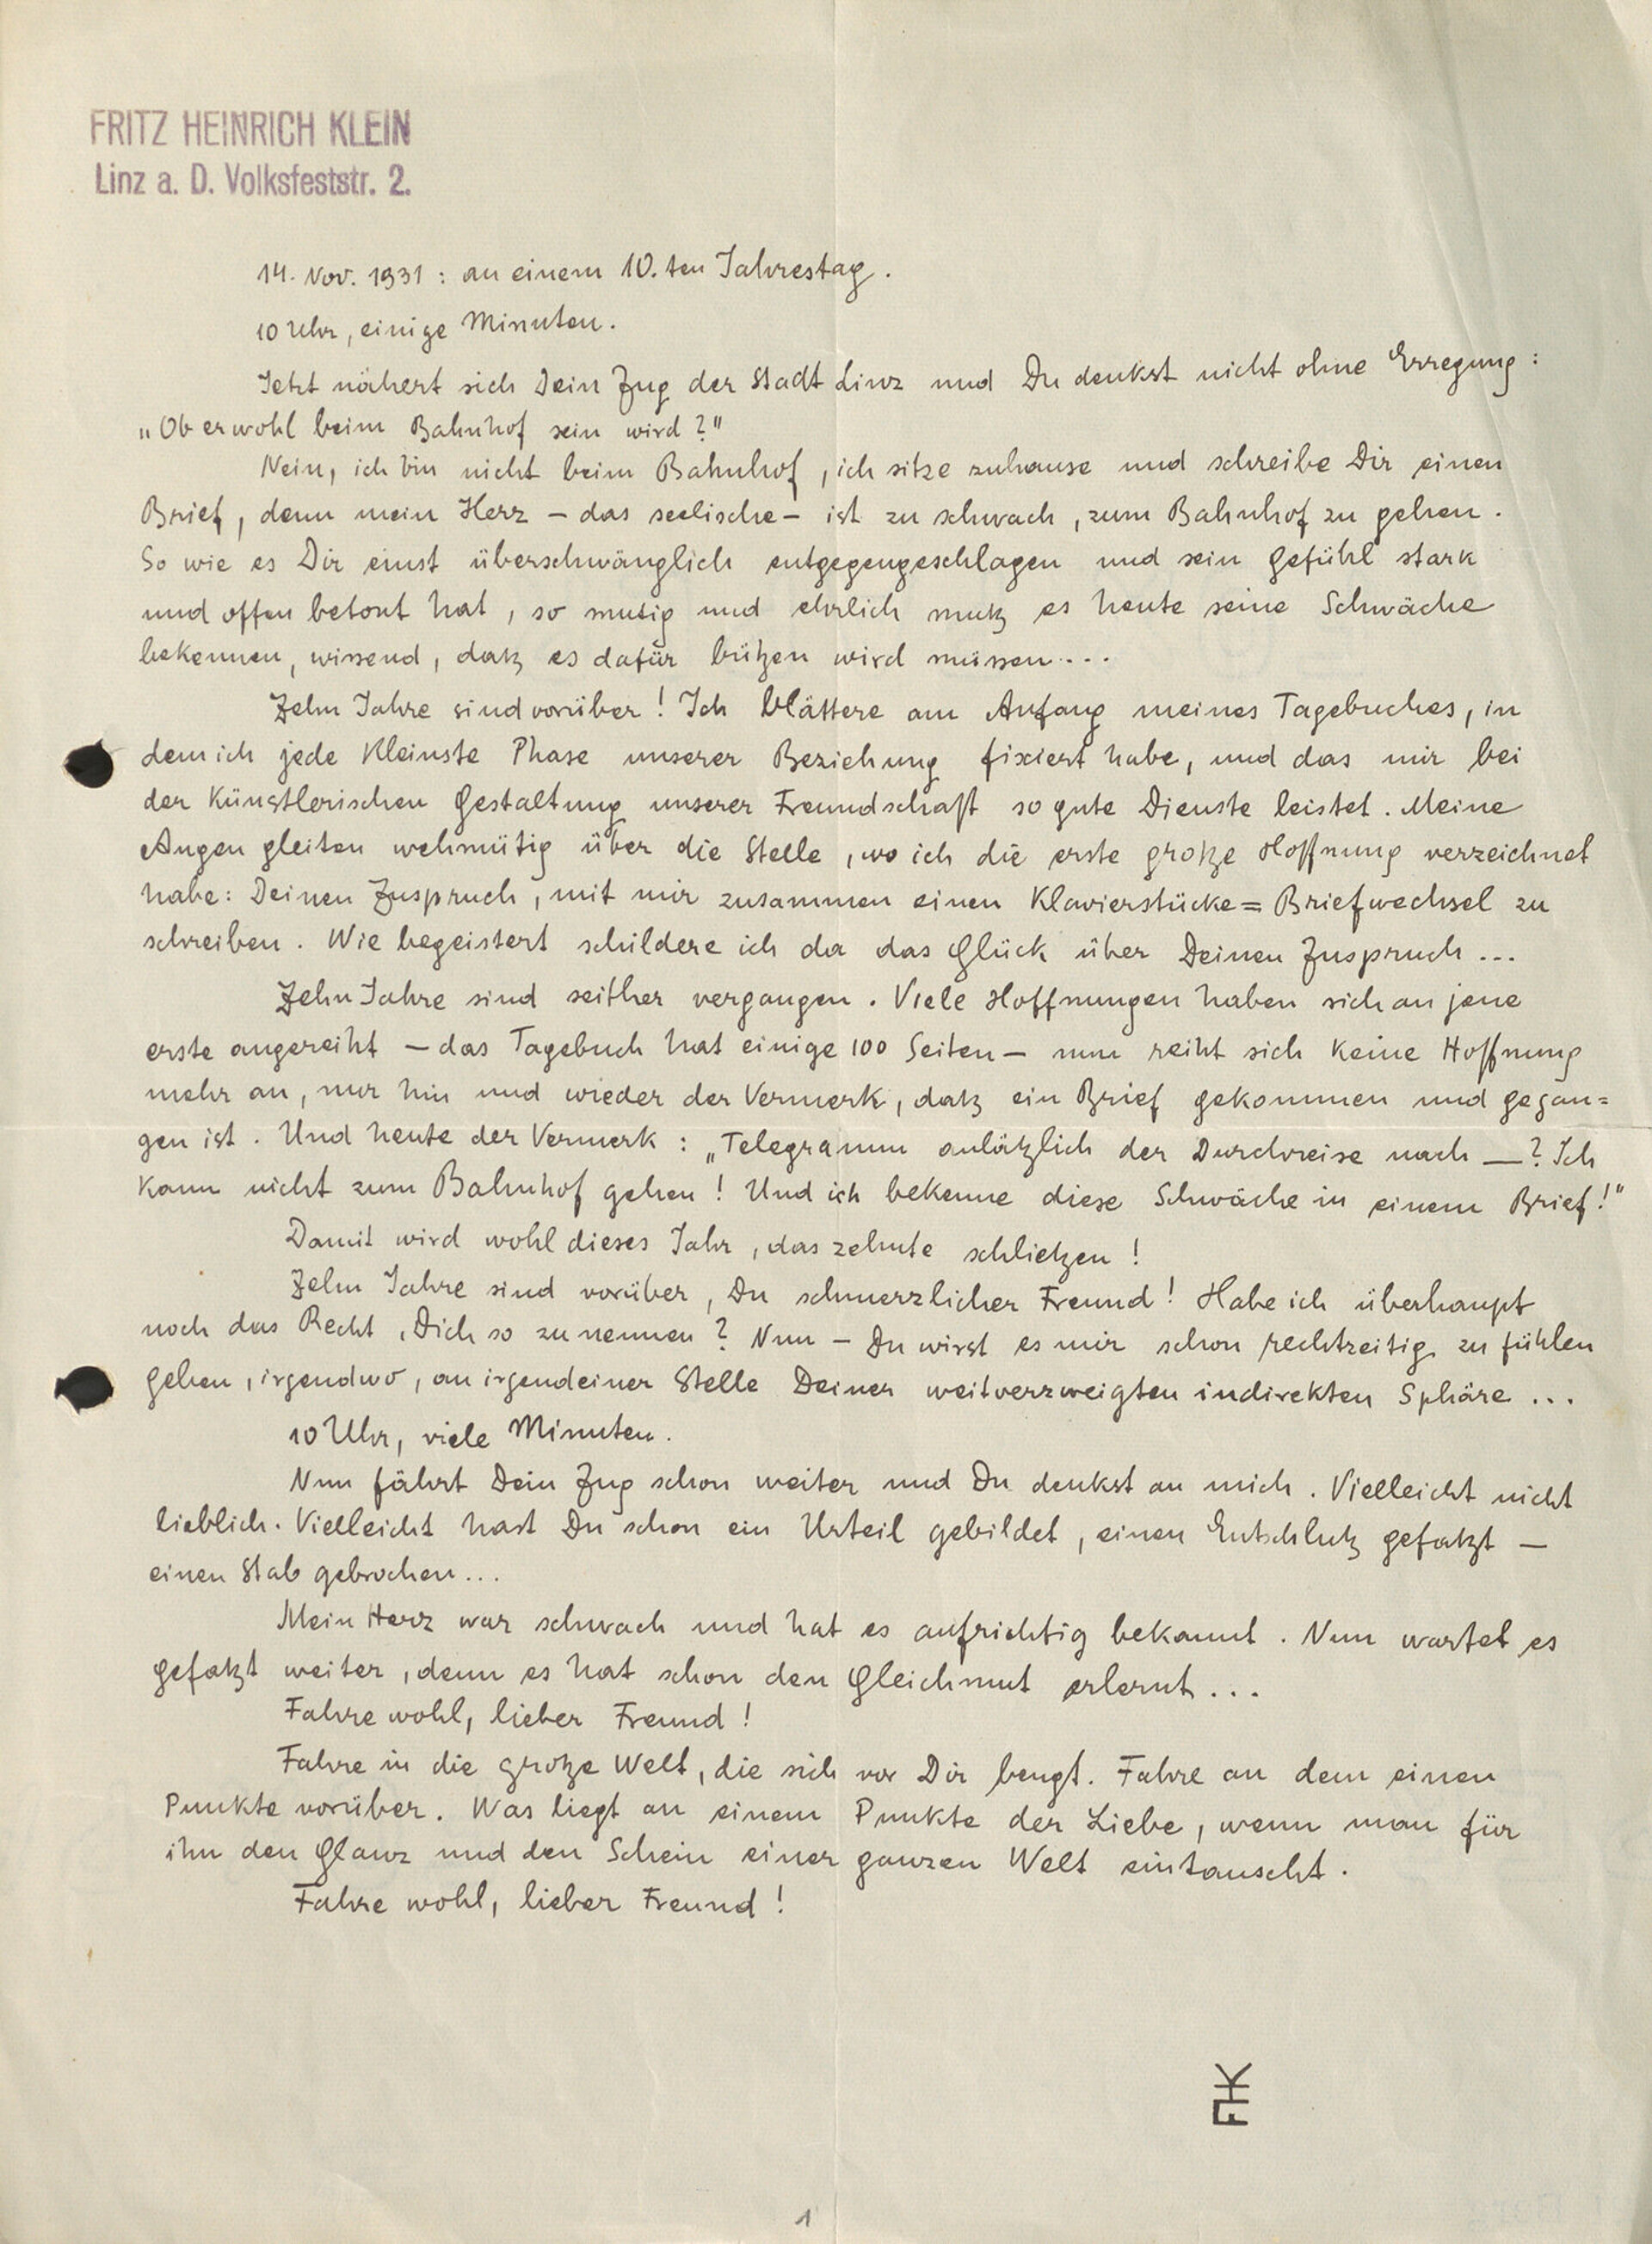 FRITZ HEINRICH KLEIN
Linz a. D. Volksfeststr. 2.
14. Nov. 1931 : an einem 10.ten Jahrestag.
10 Uhr, einige Minuten.
Jetzt nähert sich Dein Zug der Stadt Linz und Du denkst nicht ohne Erregung :
„Ob er wohl beim Bahnhof sein wird?"
Nein, ich bin nicht beim Bahnhof, ich sitze zuhause und schreibe Dir einen
Brief, denn mein Herz – das seelische – ist zu schwach, zum Bahnhof zu gehen.
So wie es Dir einst überschwänglich entgegengeschlagen und sein Gefühl stark
und offen betont hat, so mutig und ehrlich muß es heute seine Schwäche
bekennen, wissend, daß es dafür büßen wird müssen....
Zehn Jahre sind vorüber! Ich blättere am Anfang meines Tagebuches, in
dem ich jede kleinste Phase unserer Beziehung fixiert habe, und das mir bei
der künstlerischen Gestaltung unserer Freundschaft so gute Dienste leistet. Meine
Augen gleiten wehmütig über die Stelle, wo ich die erste große Hoffnung verzeichnet
habe: Deinen Zuspruch, mit mir zusammen einen Klavierstücke=Briefwechsel zu
schreiben. Wie begeistert schildere ich da das Glück über Deinen Zuspruch...
Zehn Jahre sind seither vergangen. Viele Hoffnungen haben sich an jene
erste angereiht – das Tagebuch hat einige 100 Seiten – nun reiht sich keine Hoffnung
mehr an, nur hin und wieder der Vermerk, daß ein Brief gekommen und gegan=
gen ist. Und heute der Vermerk : „Telegramm anläßlich der Durchreise nach —? Ich
kann nicht zum Bahnhof gehen! Und ich bekenne diese Schwäche in einem Brief!"
Damit wird wohl dieses Jahr, das zehnte schließen!
Zehn Jahre sind vorüber, Du schmerzlicher Freund! Habe ich überhaupt
noch das Recht, Dich so zu nennen? Nun – Du wirst es mir schon rechtzeitig zu fühlen
geben, irgendwo, an irgendeiner Stelle Deiner weitverzweigten indirekten Sphäre...
10 Uhr, viele Minuten.
Nun fährt Dein Zug schon weiter und Du denkst an mich. Vielleicht nicht
lieblich. Vielleicht hast Du schon ein Urteil gebildet, einen Entschluß gefaßt –
einen Stab gebrochen...
Mein Herz war schwach und hat es aufrichtig bekannt. Nun wartet es
gefaßt weiter, denn es hat schon den Gleichmut erlernt...
Fahre wohl, lieber Freund!
Fahre in die große Welt, die sich vor Dir beugt. Fahre an dem einen
Punkte vorüber. Was liegt an einem Punkte der Liebe, wenn man für
ihn den Glanz und den Schein einer ganzen Welt eintauscht.
Fahre wohl, lieber Freund!
FHK
1